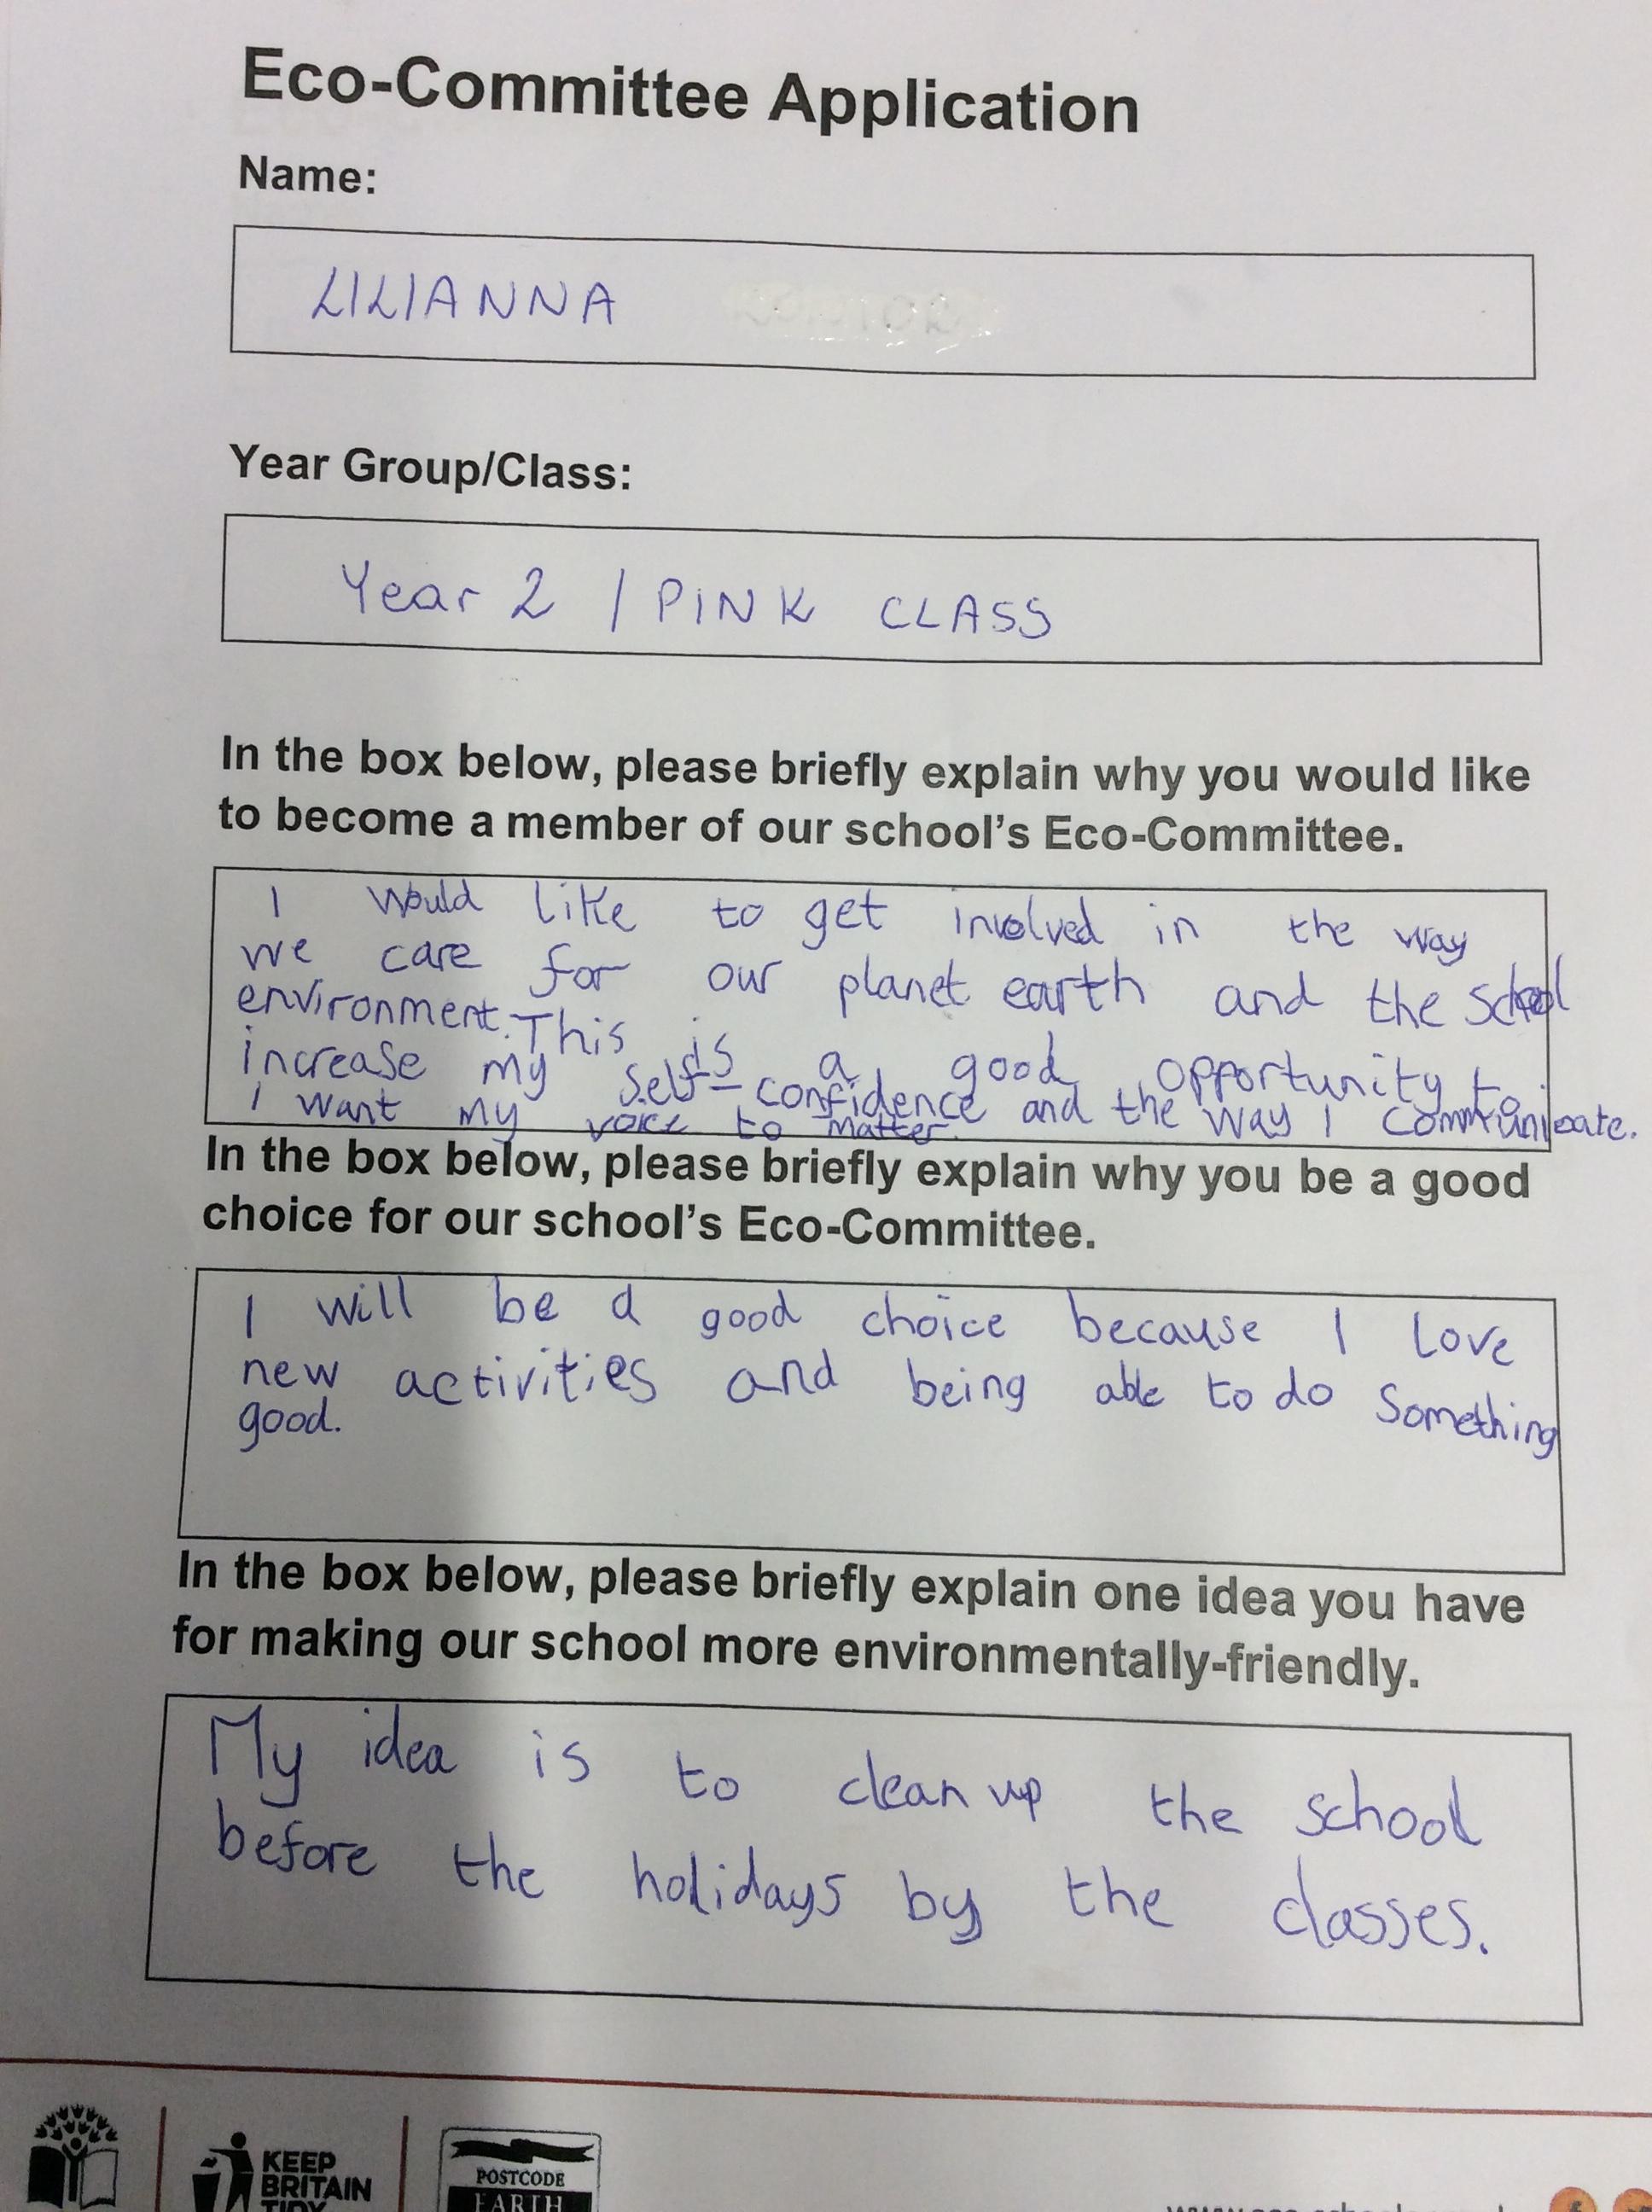 Eco-Committee Application
Name:
LILIANNA
Year Group/Class:
Year 2 / PINK CLASS
In the box below, please briefly explain why you would like
to become a member of our school's Eco-Committee.
I would like to get involved in the way
we care for our planet earth and the school
environment. This is a good opportunity to
increase my self-confidence and the way I communicate.
I want my voice to matter.
In the box below, please briefly explain why you be a good
choice for our school's Eco-Committee.
I will be a good choice because I love
new activities and being able to do something
good.
In the box below, please briefly explain one idea you have
for making our school more environmentally-friendly.
My idea is to clean up the school
before the holidays by the classes.
KEEP
BRITAIN
TIDY
POSTCODE
EARTH